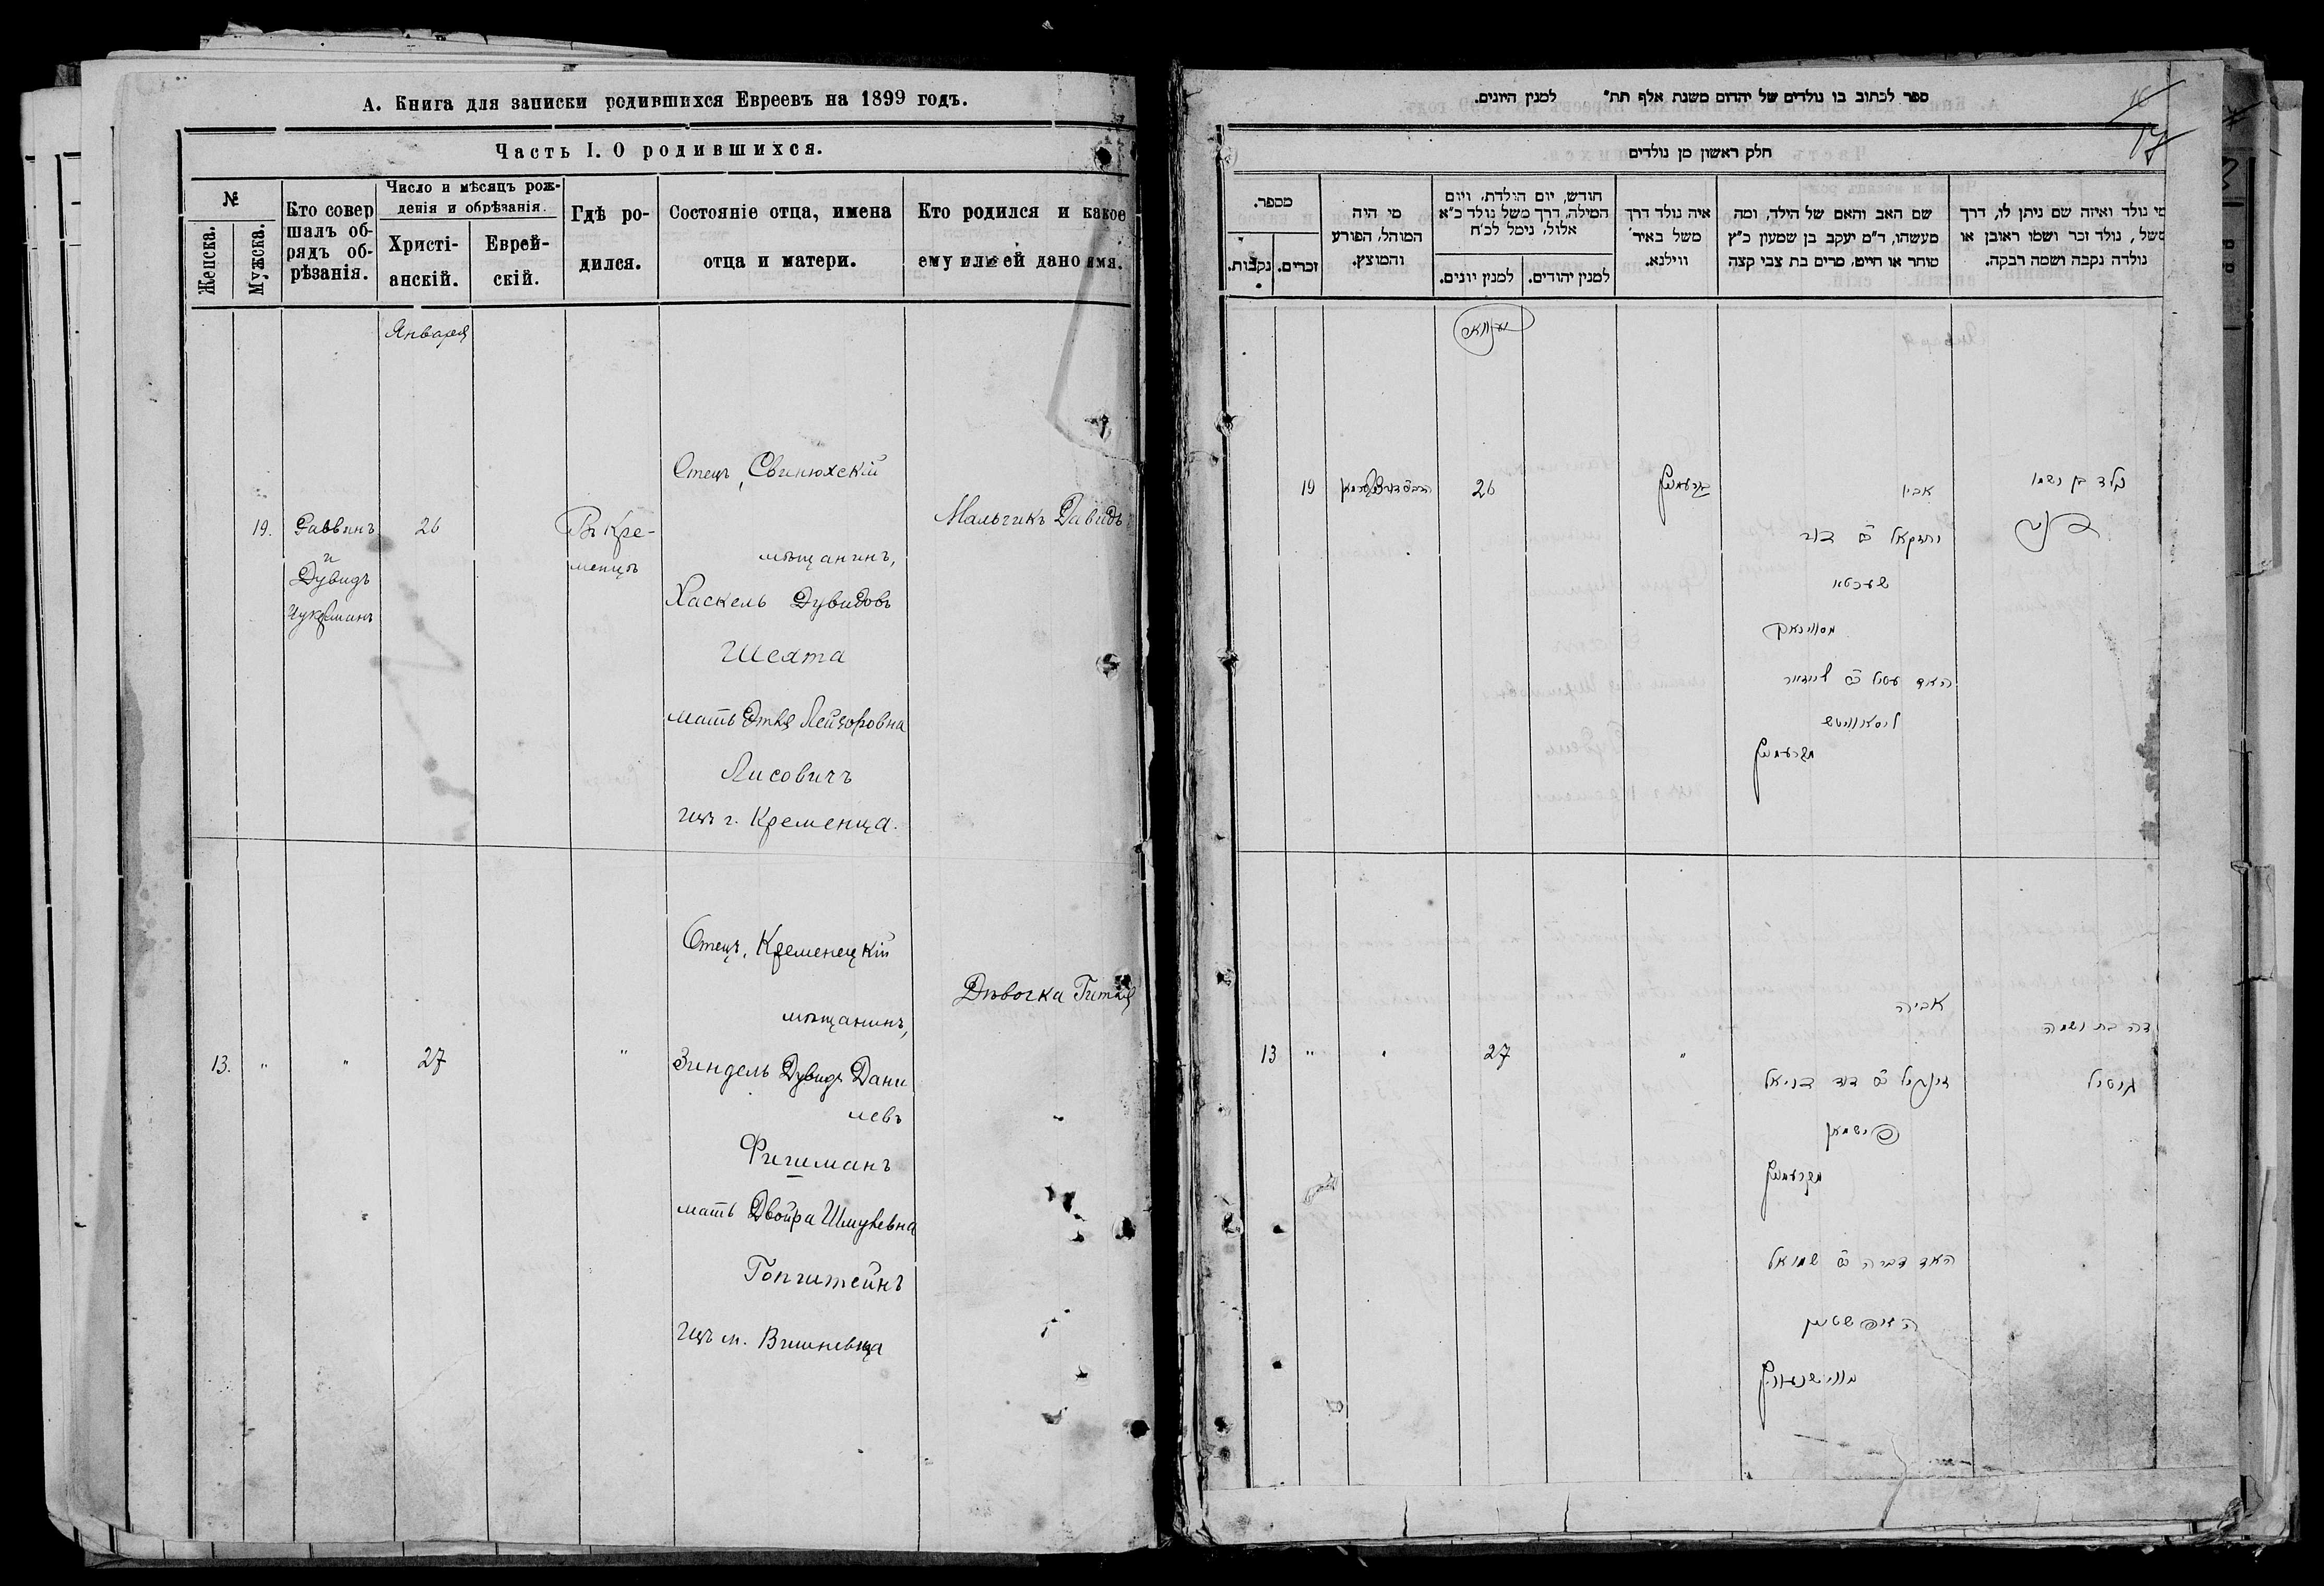 А. Книга для записки родившихся Евреевъ на 1899 годъ.
Часть I. О родившихся.
№
Женска.
Мужска.
Кто совер
шалъ об-
рядъ об-
рѣзанія.
Число и мѣсяцъ рож-
денія и обрѣзанія.
Христі-
анскій.
Еврей-
скій.
Гдѣ ро-
дился.
Состояніе отца, имена
отца и матери.
Кто родился и какое
ему или ей дано имя.
Января
19.
Раввинъ
и
Дувидъ
Цукерманъ
26
Въ Кре-
менцѣ
Отецъ, Свинюхскій
мѣщанинъ,
Хаскель Дувидовъ
Шехта
мать Этля Лейзоровна
Лисовичъ
изъ г. Кременца.
Мальчикъ Давидъ
13.
"
"
27
"
Отецъ, Кременецкій
мѣщанинъ,
Зиндель Дувидъ Дани
левъ
Фишманъ
мать Двойра Шмулевна
изъ м. Вишневца
Дѣвочка Гитля
ספר לכתוב בו נולדים של יהדום משנת אלף תת" למנין היונים.
16
17
חלק ראשון מן נולדים
מספר.
נקבות.
זכרים.
מי היה
המוהל, הפורע
והמוצץ.
חודש, יום הולדת, ויום
המילה, דרך משל נולד כ"א
אלול, נימל לכ"ח
למנין יונים.
למנין יהודים.
איה נולד דרך
משל באיר'
ווילנא.
שם האב והאם של הילד, ומה
מעשהו, ד"מ יעקב בן שמעון כ"ץ
סוחר או חייט, מרים בת צבי קצה
מי נולד ואיזה שם ניתן לו, דרך
משל, נולד זכר ושמו ראובן או
נולדה נקבה ושמה רבקה.
יאנואר
19
26
קרעמניץ
אביו
יחזקאל ב"ר דוד
שעכטא
האם עטיל ב"ר לייזער
ליסאוויטש
מקרעמניץ
נולד בן ושמו
דוד
13
"
"
27
"
אביה
זינדיל ב"ר דוד דניאל
פישמאן
מקרעמניץ
האם דברה ב"ר שמואל
מווישנעוויץ
דה בת ושמה
גיטיל